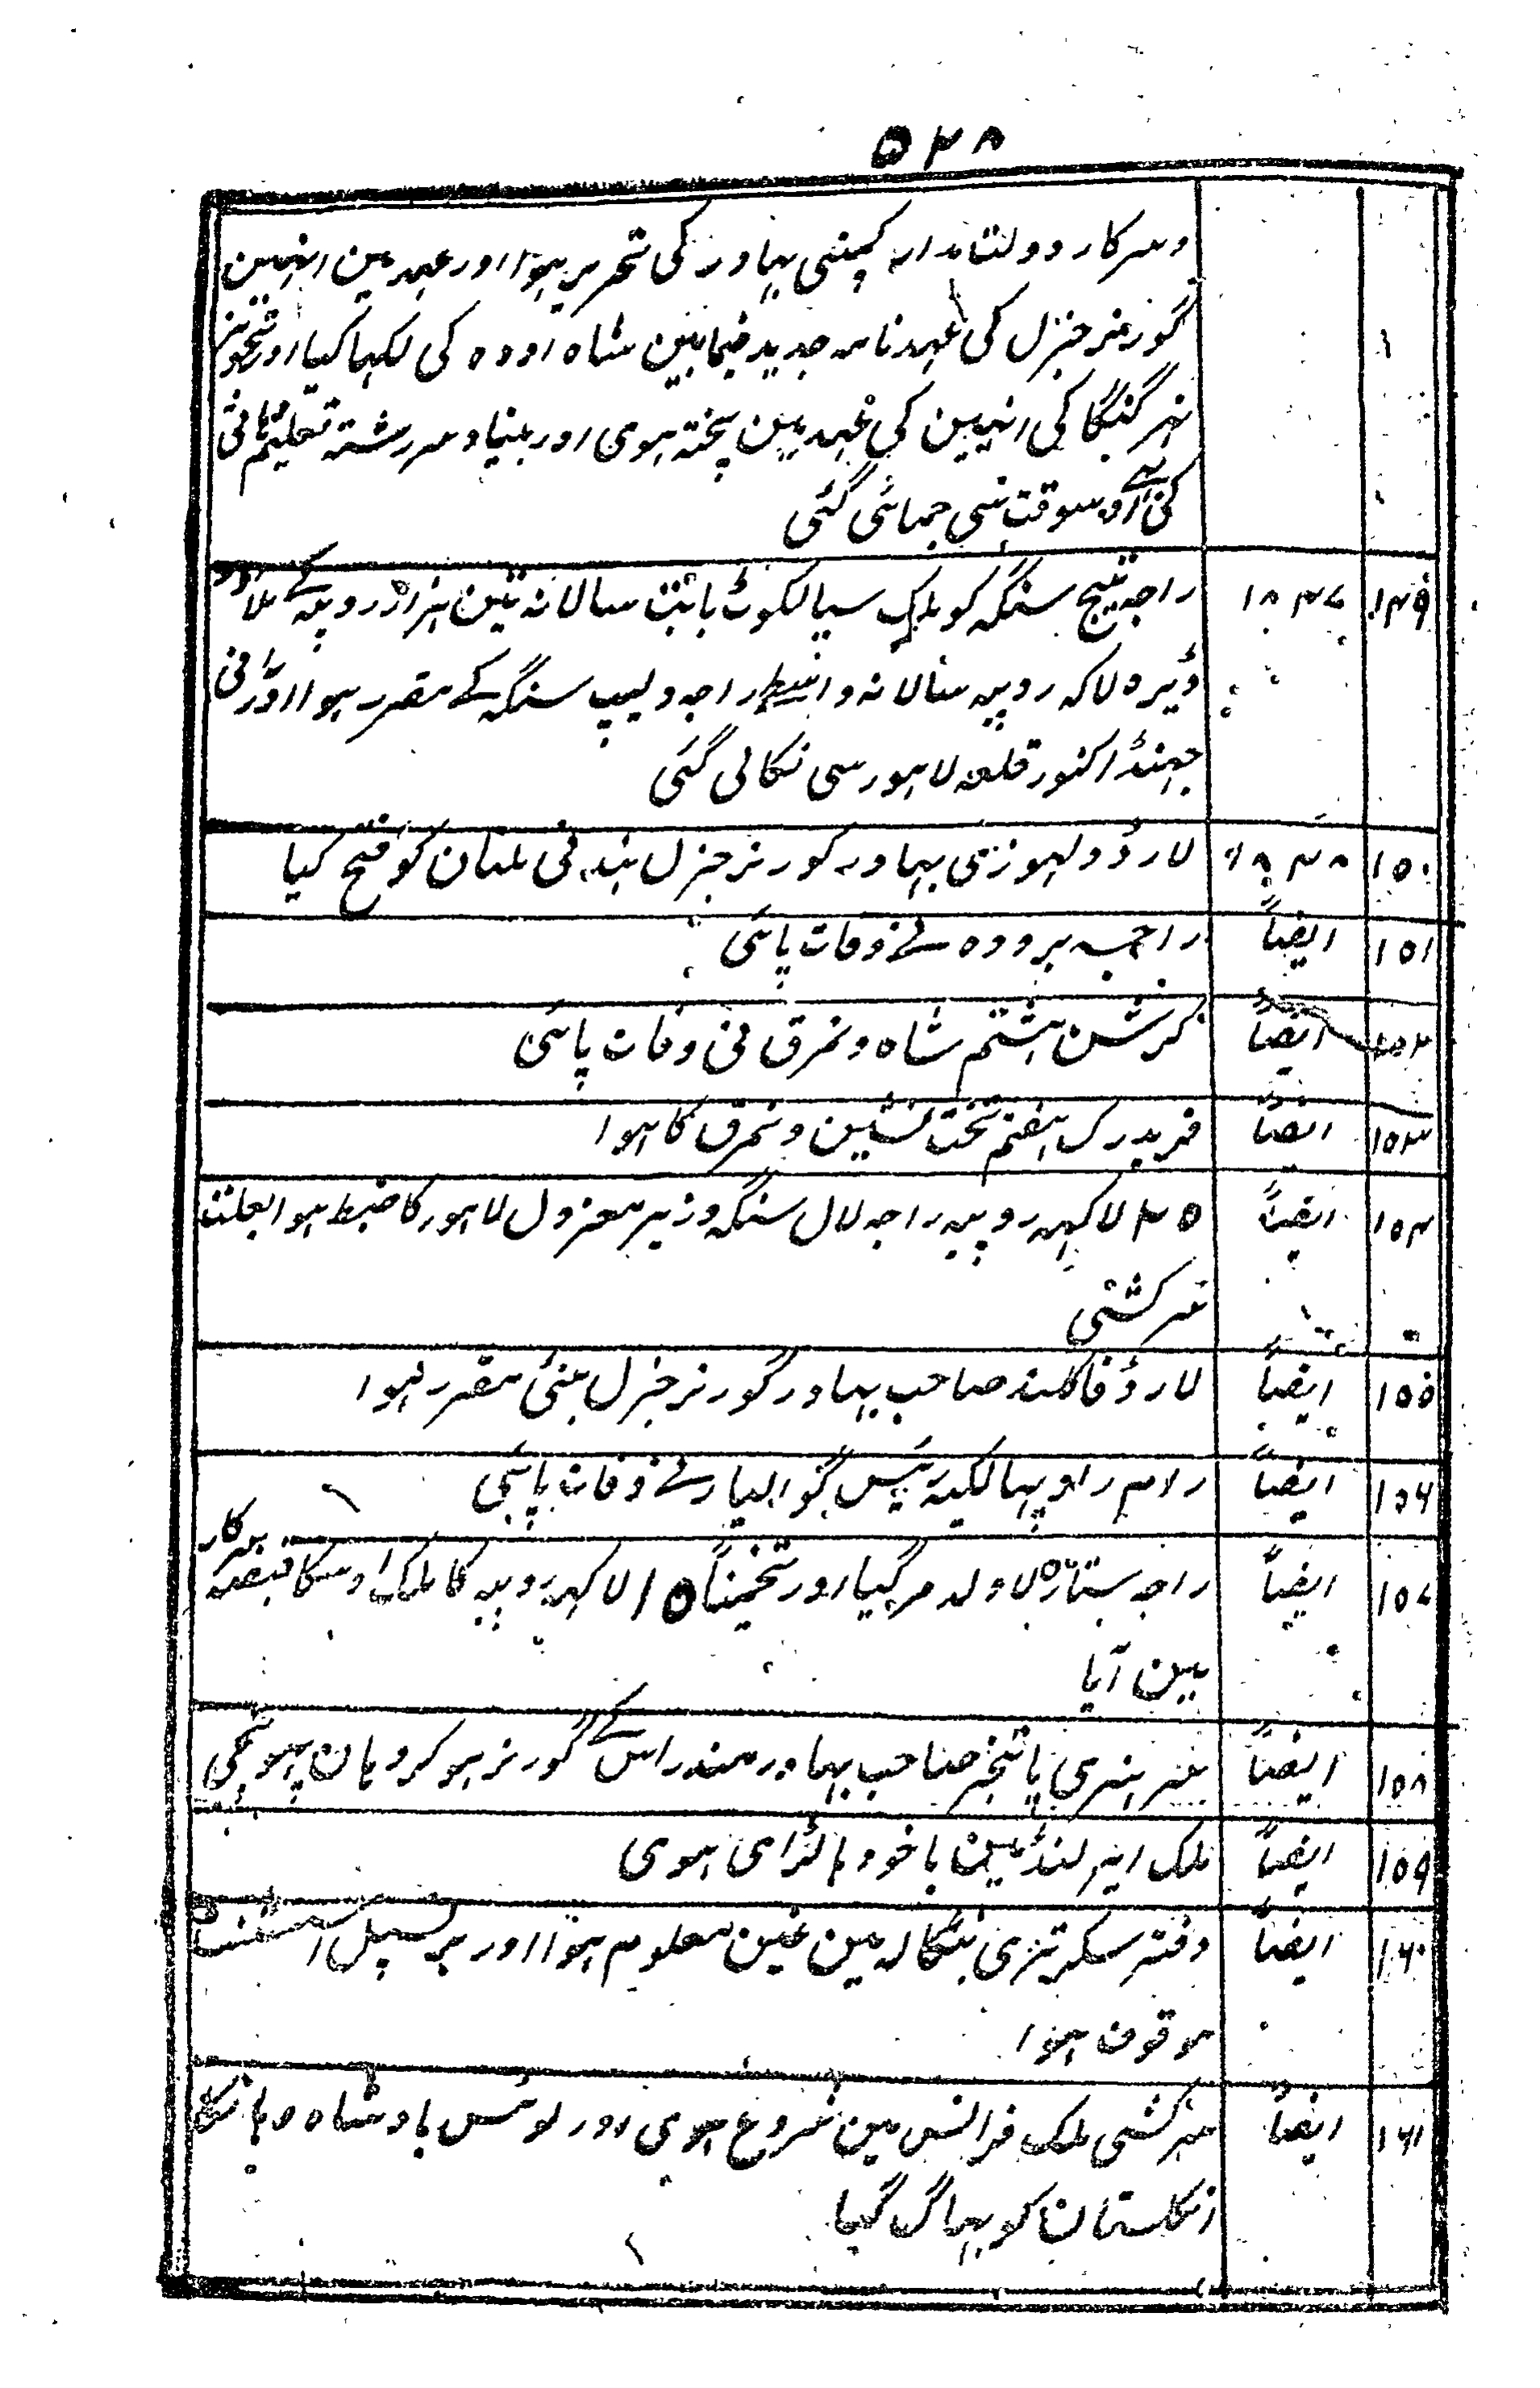 ۵۲۸
وسرکار دولتمدار کمپنی بہادر کی تحریر ہوا اور عہد مین انہین
گورنر جنرل کی عہد نامہ جدید فیمابین شاہ اودہ کی لکہا گیا اور تجویز
نہر گنگا کی انہین کی عہد مین پختہ ہوی اور بنیاد سررشتہ تعلیم
کی اوسوقت سی جمائی گئی
۱۴۹ ۱۸۴۷ راجہ تیج سنگہ کو ملک سیالکوٹ بابت سالانہ تین ہزار روپیہ کے ملا اور
ڈیڑہ لاکہ روپیہ سالانہ واسطے راجہ دلیپ سنگہ کے مقرر ہوا اور رانی
جہنڈا کنور قلعہ لاہور سی نکالی گئی
۱۵۰ ۱۸۴۸ لارڈ ولہوزی بہادر گورنر جنرل ہند نی ملتان کو فتح کیا
۱۵۱ ایضاً راجہ برودہ نے وفات پائی
۱۵۲ ایضاً کرشن ہشتم شاہ ونمرق نی وفات پائی
۱۵۳ ایضاً فریدرک ہفتم تخت نشین ونمرق کا ہوا
۱۵۴ ایضاً ۲۵ لاکہہ روپیہ راجہ لال سنگہ وزیر معزول لاہور کا ضبط ہوا بعلت
سرکشی
۱۵۵ ایضاً لارڈ فاکلند صاحب بہادر گورنر جنرل بمبئی مقرر ہوا
۱۵۶ ایضاً رام راو پہالکیہ رئیس گوالیار نے وفات پائی
۱۵۷ ایضاً راجہ ستارہ لاولد مرگیا اور تخمیناً ۱۵ لاکہہ روپیہ کا ملک اوسکا قبضہ سرکار
مین آیا
۱۵۸ ایضاً سر ہنری پاتنجر صاحب بہادر مندراس کے گورنر ہو کر وہان پہونچی
۱۵۹ ایضاً ملک ایرلنڈ مین باخودہا لڑای ہوی
۱۶۰ ایضاً دفتر سکریتری بنگالہ مین غبن معلوم ہوا اور پرنسپل اسسٹنٹ
موقوف ہوا
۱۶۱ ایضاً سرکشی ملک فرانس مین شروع ہوی اور لوئس بادشاہ وہانکا
انگلستان کو بہاگ گیا